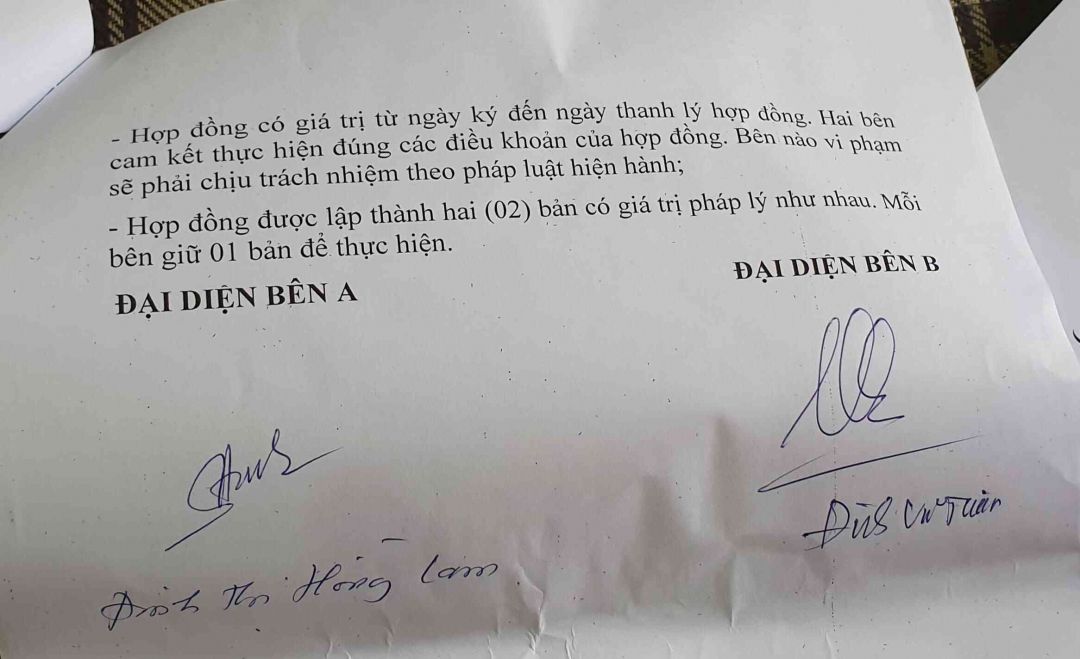 - Hợp đồng có giá trị từ ngày ký đến ngày thanh lý hợp đồng. Hai bên
cam kết thực hiện đúng các điều khoản của hợp đồng. Bên nào vi phạm
sẽ phải chịu trách nhiệm theo pháp luật hiện hành;
- Hợp đồng được lập thành hai (02) bản có giá trị pháp lý như nhau. Mỗi
bên giữ 01 bản để thực hiện.
ĐẠI DIỆN BÊN A
ĐẠI DIỆN BÊN B
Đinh Thị Hồng Lam